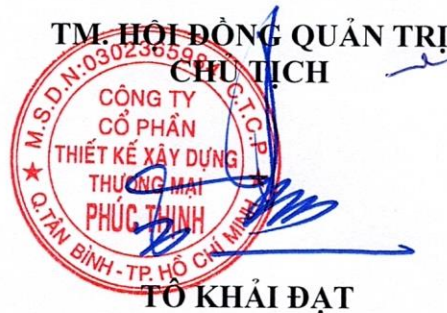 TM. HỘI ĐỒNG QUẢN TRỊ
CHỦ TỊCH
M.S.D.N:0302365984 C.T.C.P
CÔNG TY
CỔ PHẦN
THIẾT KẾ XÂY DỰNG
THƯƠNG MẠI
PHÚC THỊNH
Q.TÂN BÌNH - TP. HỒ CHÍ MINH
TÔ KHẢI ĐẠT